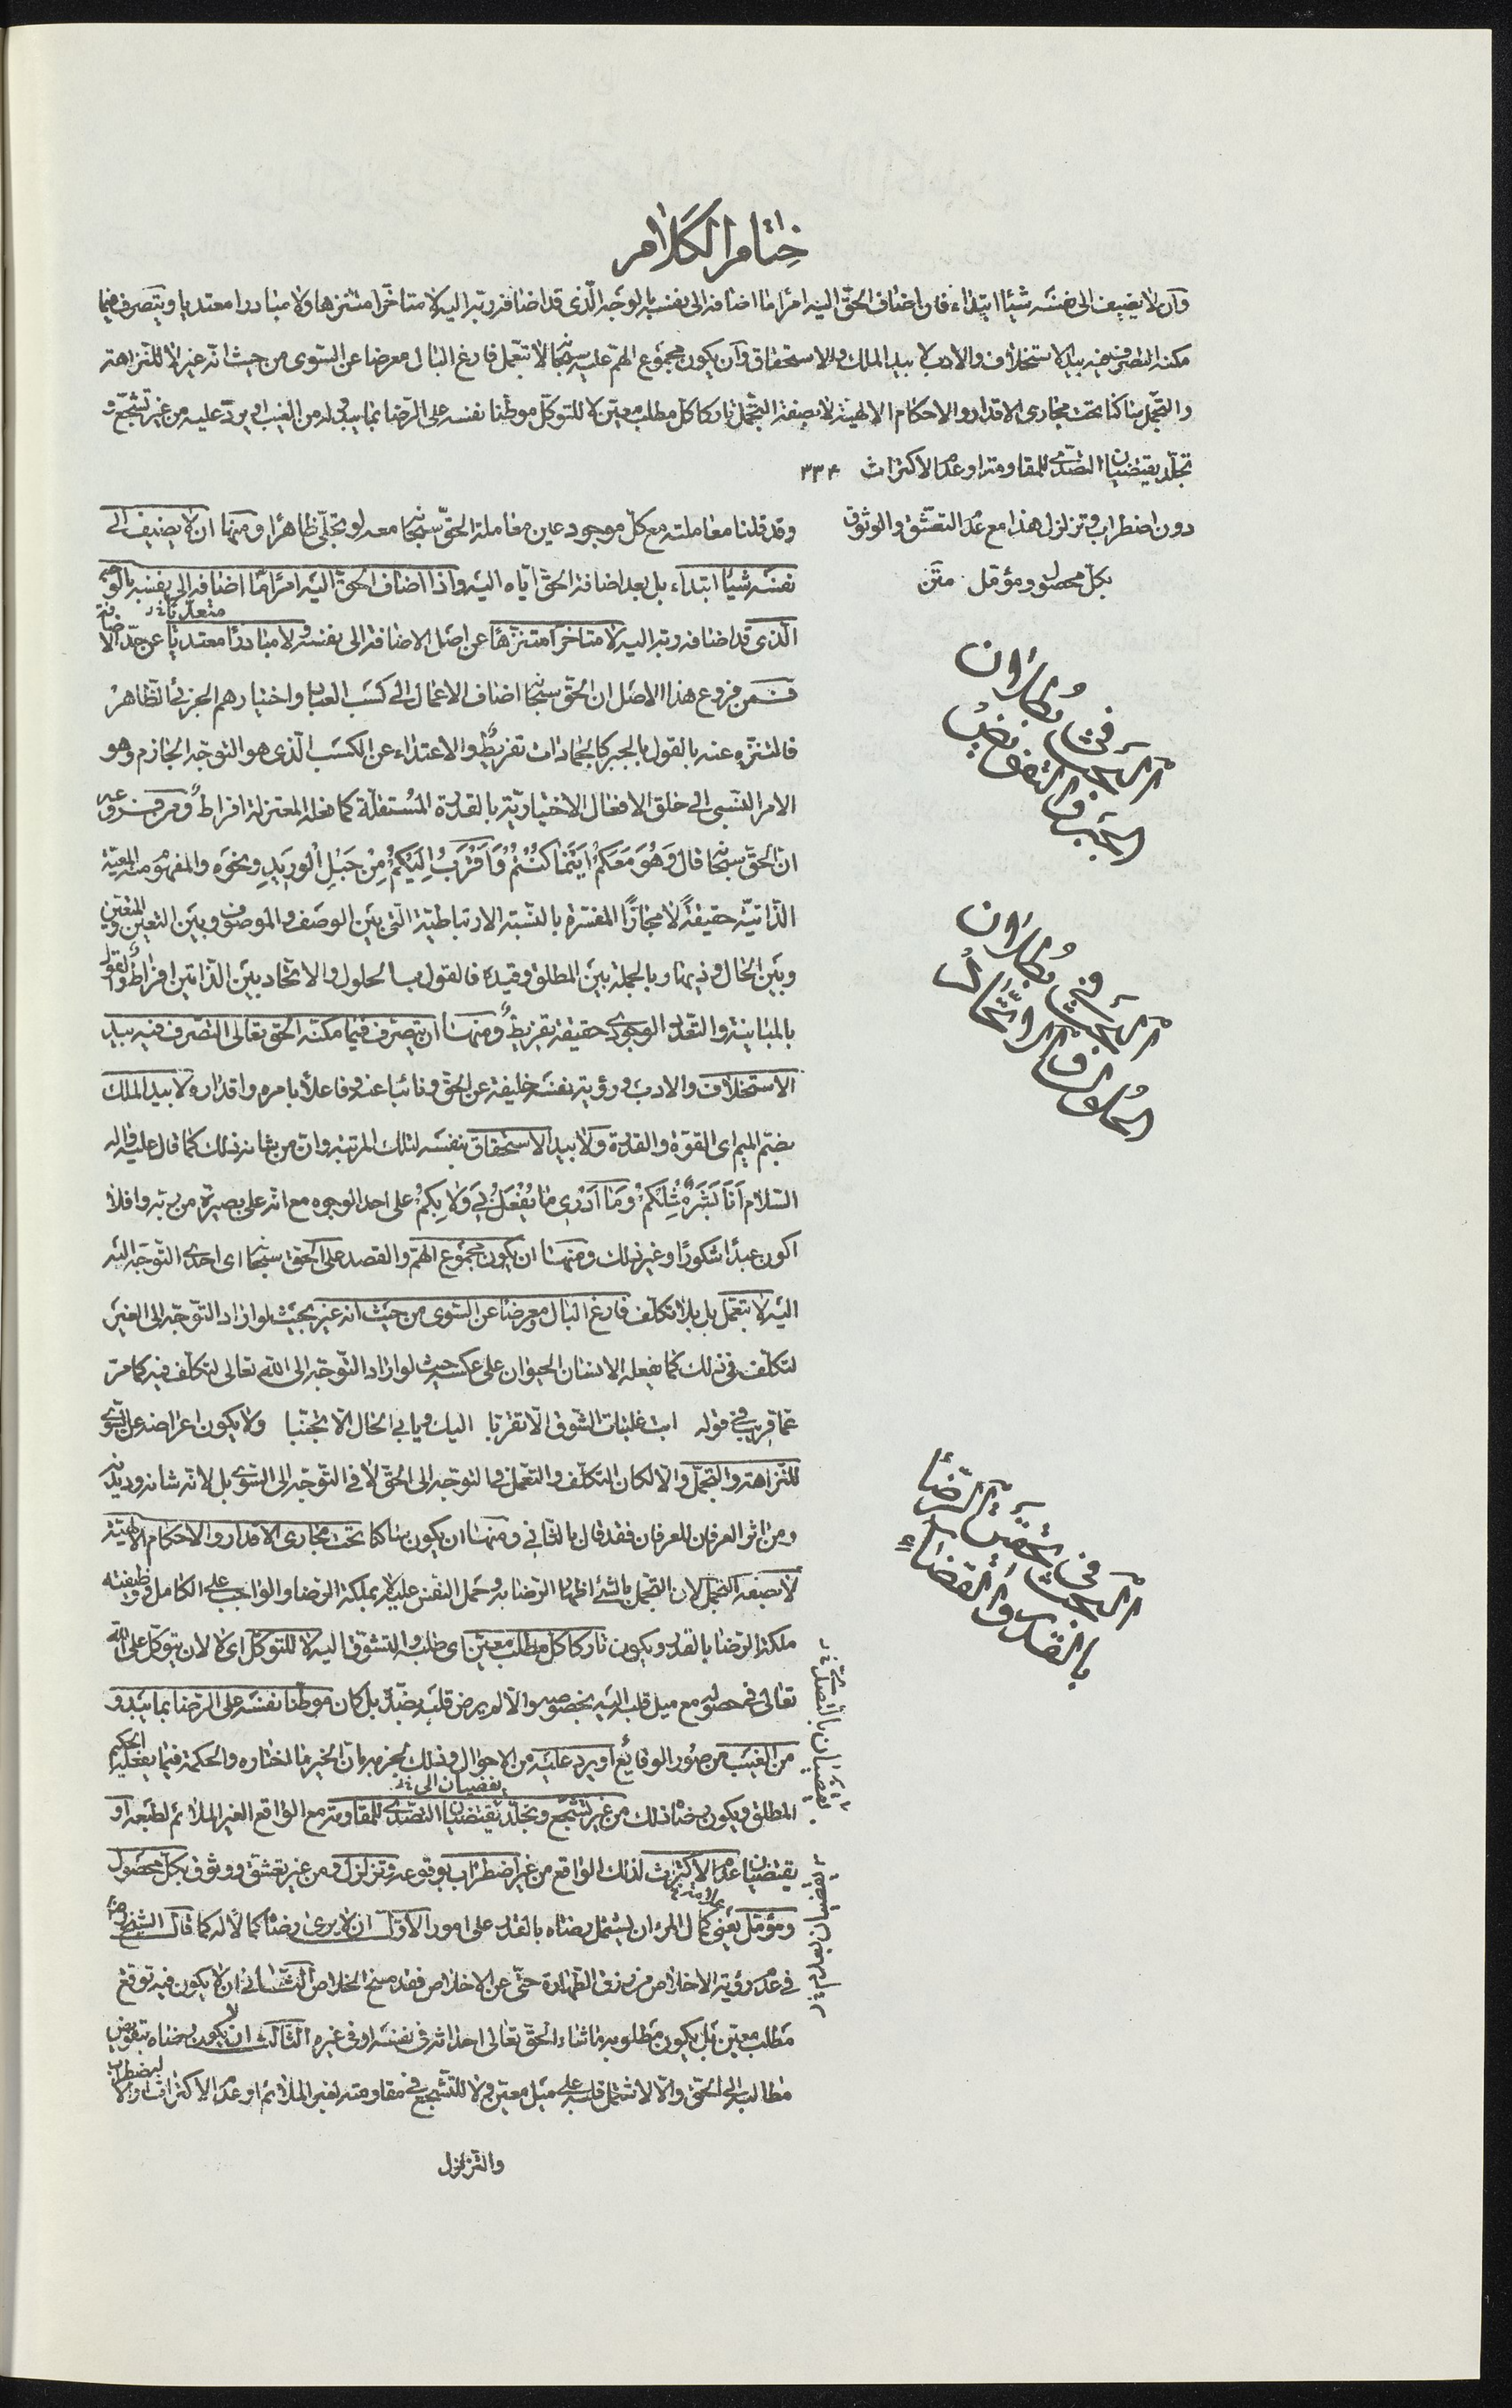 ختام الكلام
وان لا يضيف الى نفسه شيئا ابتداء فان اضاف الحق اليه امرا ما اضافه الى نفسه بالوجه الذى قد اضافه ربه اليه لا متاخرا متنزها ولا مبادرا معتديا ويتصرف فيما
مكنه التصرف فيه بيد الاستخلاف والادب لا بيد الملك والاستحقاق وان يكون مجموع الهم عليه سبحانه لا بتعمل فارغ البال معرضا عن السوى من حيث انه غير لا للنزاهة
والتجمل ساكنا تحت مجارى الاقدار والاحكام الالهية لا بصفة التجمل تاركا كل مطلب معين لا للتوكل موطنا نفسه على الرضا بما يبدو له من الغيب او يرد عليه من غير تشجع و
تجلد يقتضيان التصدى للمقاومة او عدم الاكتراث ٣٣٤
دون اضطراب وتزلزل هذا مع عدم التعشق والوثوق
بكل محصول ومؤمل متن
وقد قلنا معاملته مع كل موجود عين معاملة الحق سبحانه معه لو تجلى ظاهرا ومنها ان لا يضيف الى
نفسه شيئا ابتداء بل بعد اضافة الحق اياه اليه واذا اضاف الحق اليه امرا ما اضافه الى نفسه بالوجه
الذى قد اضافه ربه اليه لا متاخرا متنزها عن اصل الاضافة الى نفسه ولا مبادرا معتديا عن حد الاضافة
فمن فروع هذا الاصل ان الحق سبحانه اضاف الاعمال الى كسب العباد واختيارهم الجزئى الظاهر
فالتنزه عنه بالقول بالجبر كالجمادات تفريط والاعتداء عن الكسب الذى هو التوجه الجازم وهو
الامر النسبى الى خلق الافعال الاختيارية بالقدرة المستقلة كما فعله المعتزلة افراط ومن فروعه
ان الحق سبحانه قال وَهُوَ مَعَكُمْ اَيْنَمَا كُنْتُمْ وَاَقْرَبُ اِلَيْكُمْ مِنْ حَبْلِ الْوَرِيدِ ونحوه والمفهوم منه المعية
الذاتية حقيقة لا مجازا المفسرة بالنسبة الارتباطية التى بين الوصف والموصوف وبين التعين والمتعين
وبين الحال وذيها وبالجملة بين المطلق وقيده فالقول بالحلول والاتحاد بين الذاتين افراط والقول
بالمباينة والتعدد الوجودى حقيقة تفريط ومنها ان يتصرف فيما مكنه الحق تعالى التصرف فيه بيد
الاستخلاف والادب ورؤية نفسه خليفة عن الحق ونائبا عنه وفاعلا بامره واقداره ولا بيد الملك
بضم الميم اى القوة والقدرة ولا بيد الاستحقاق بنفسه لتلك المرتبة وان من شانه ذلك كما قال عليه وآله
السلام اَنَا بَشَرٌ مِثْلُكُمْ وَمَا اَدْرِى مَا يُفْعَلُ بِى وَلَا بِكُمْ على احد الوجوه مع انه على بصيرة من ربه وافلا
اكون عبدا شكورا وغير ذلك ومنها ان يكون مجموع الهم والقصد على الحق سبحانه اى احدى التوجه اليه
اليه لا بتعمل بل بلا تكلف فارغ البال معرضا عن السوى من حيث انه غير بحيث لو اراد التوجه الى الغير
لتكلف فى ذلك كما يفعله الانسان الحيوان على عكسه حيث لو اراد التوجه الى الله تعالى لتكلف فيه كما مر
عما قريب فى قوله ابت غلبات الشوق الا تقربا اليك ويابى الحال الا تجنبا ولا يكون اعراضه عن السوى
للنزاهة والتجمل والا لكان التكلف والتعمل فى التوجه الى الحق لا فى التوجه الى السوى بل لانه شانه وديدنه
ومن اثر العرفان للعرفان فقد قال بالثانى ومنها ان يكون ساكنا تحت مجارى الاقدار والاحكام الالهية
لا بصفة التجمل لان التجمل بالشئ اظهار الرضا به وحمل النفس عليه لا بملكة الرضا والواجب على الكامل وظيفته
ملكة الرضا بالقدر ويكون تاركا كل مطلب معين اى طلبه والتشوق اليه لا للتوكل اى لا لان يتوكل على الله
تعالى فى حصوله مع ميل قلبه اليه بخصوصه والا لم يرض قلبه بضده بل كان موطنا نفسه على الرضا بما يبدو
من الغيب من صور الوقائع او يرد عليه من الاحوال وذلك لجزمه بان الخير فيما اختاره والحكمة فيما يفعله الحكيم
المطلق ويكون رضاه ذلك من غير تشجع وتجلد يقتضيان التصدى للمقاومة مع الواقع الغير الملائم لطبعه او
يقتضيان عدم الاكتراث لذلك الواقع من غير اضطراب بوقوعه وتزلزل ومن غير تعشق ووثوق بكل محصول
ومؤمل يعنى كمال المرء ان يشتمل رضاه بالقدر على امور الاول ان لا يرى رضاه كمالا له كما قال الشيخ
فى عدم رؤية الاخلاص من رزق الطهارة حتى عن الاخلاص فقد منح الخلاص الثانى ان لا يكون فيه توقع
مطلب معين بل يكون مطلوبه ما شاء الحق تعالى احداثه فى نفسه او فى غيره الثالث ان لا يكون رضاه بتفويض
مطالبه الى الحق والا لاشتمل قلبه على ميل معين ولا للتشجع فى مقاومته لغير الملائم او عدم الاكتراث والا لاضطراب
والتزلزل
البحث فى بطلان
الجبر والتفويض
البحث فى بطلان
الحلول والاتحاد
البحث فى تحقيق الرضا
بالقدر والقضاء